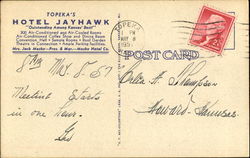 TOPEKA'S
HOTEL JAYHAWK
"Outstanding Among Kansas' Best"
300 Air-Conditioned and Air-Cooled Rooms
Air-Conditioned Coffee Shop and Dining Room
Convention Hall • Sample Rooms • Roof Garden
Theatre in Connection • Ample Parking Facilities.
TOPEKA
PM
MAY 8
1957
POST CARD
8 PM May 8-57
Meeting Starts
in one hour.
Howard-Kansas